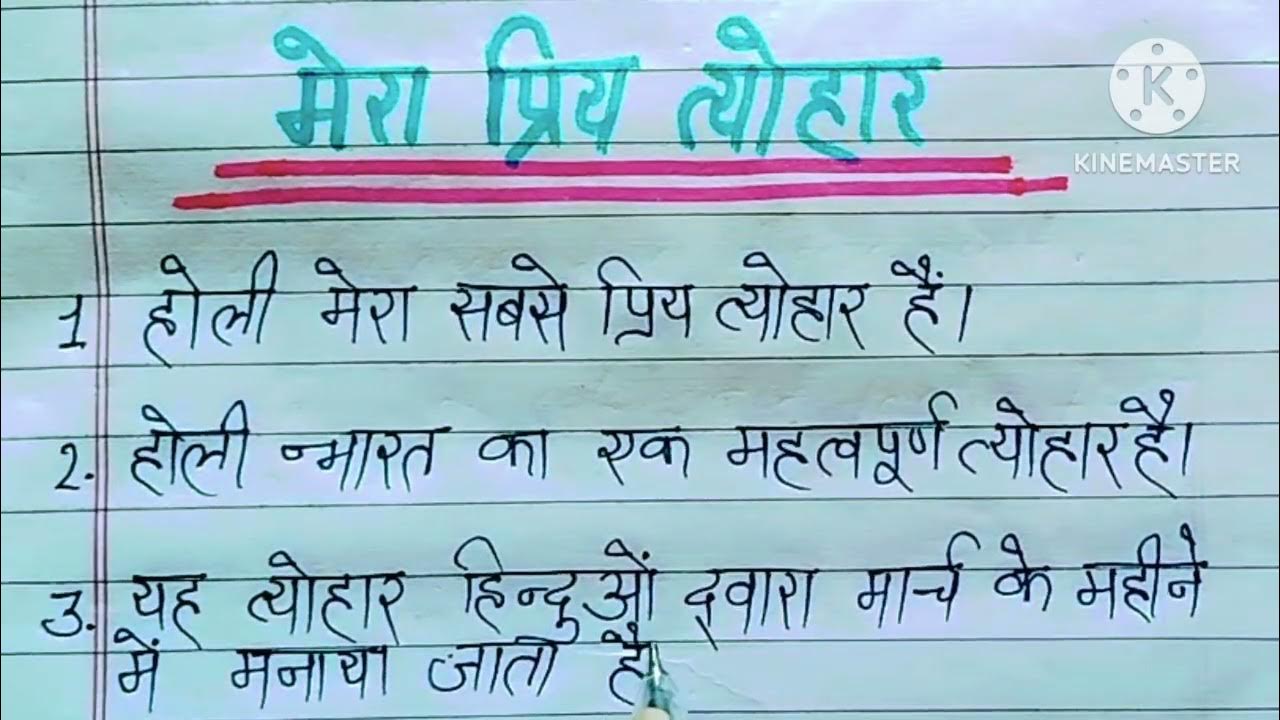 मेरा प्रिय त्योहार
K
KINEMASTER
1 होली मेरा सबसे प्रिय त्योहार हैं।
2. होली भारत का एक महत्वपूर्ण त्योहार है।
3. यह त्योहार हिन्दुओं द्वारा मार्च के महीने
में मनाया जाता है